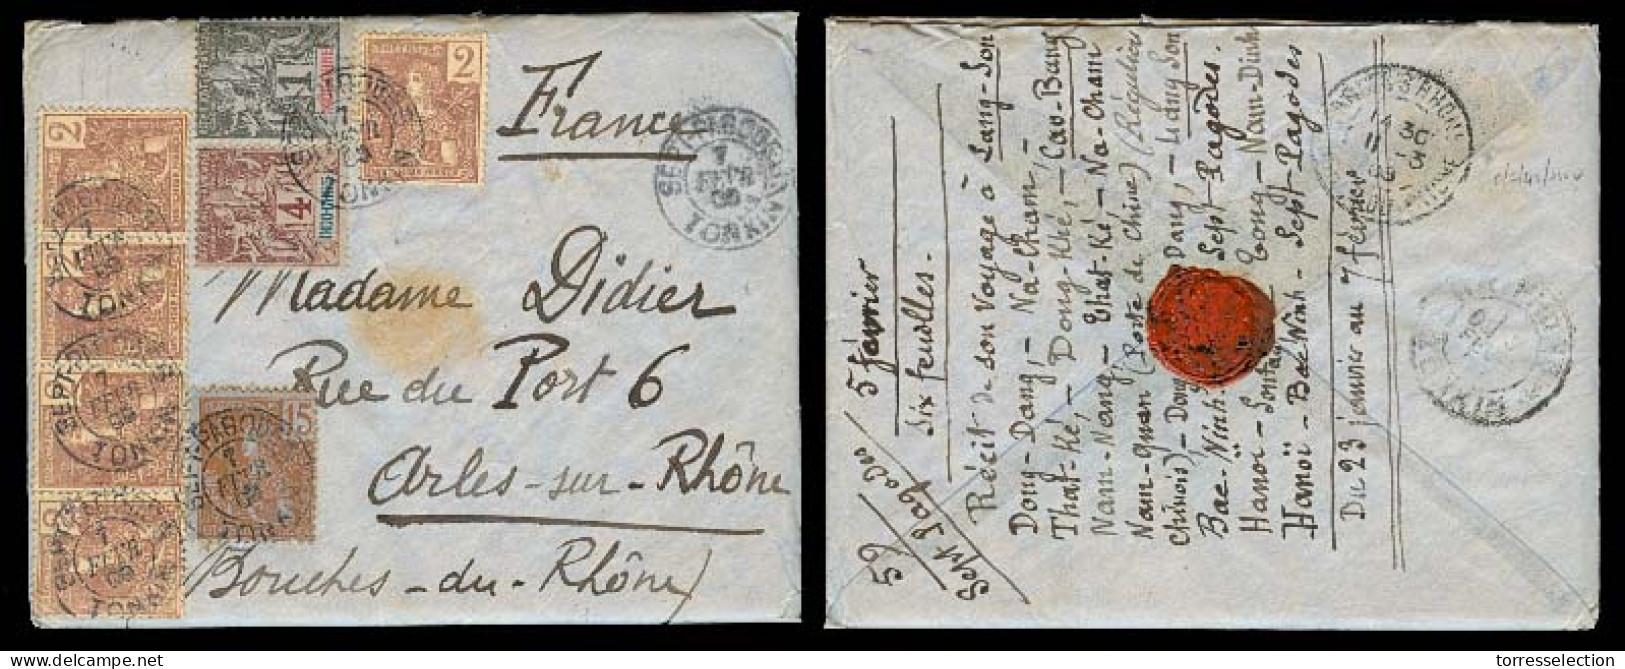 France
Madame Didier
Rue du Port 6
Arles-sur-Rhône
Bouches-du-Rhône)
2
1
4
INDO-CHINE
2
15
SEPT-PAGODES
7
FEVR
TONKIN
59
Sept Pagodes / 5 février
Six feuilles.
Récit de son voyage à Lang-Son
Dong-Dang, - Na-Cham, -
That-Ké - Dong-Khé, - Cao-Bang
Nam-Nang, - That-Ké - Na-Cham
Nam-Quan (Porte de Chine) (Réguliers
Chinois) - Dong Dang, - Lang Son
Bac-Ninh. Sept-Pagodes.
Hanoï - Sontay Tong - Nam-Dinh
Hanoï - Bac Ninh - Sept-Pagodes
Du 23 janvier au 7 février
torresselection